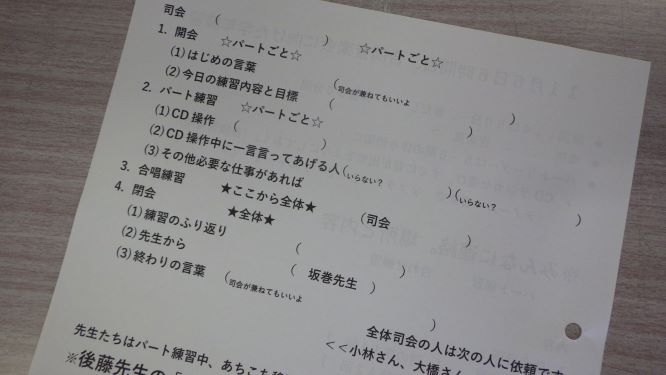 司会 （ ） ☆パートごと☆
1. 開会 ☆パートごと☆
(1)はじめの言葉 （司会が兼ねてもいいよ ）
(2)今日の練習内容と目標 （ ）
2. パート練習 ☆パートごと☆
(1)CD操作 （ ）
(2)CD操作中に一言言ってあげる人（いらない？ ）（いらない？ ）
(3)その他必要な仕事があれば
3. 合唱練習 ★ここから全体★ （司会 ）
4. 閉会 ★全体★
(1)練習のふり返り （ ）
(2)先生から （ 坂巻先生 ）
(3)終わりの言葉 （司会が兼ねてもいいよ ）
全体司会の人は次の人に依頼です
<<小林さん、大橋さん
先生たちはパート練習中、あちこち
※後藤先生の「